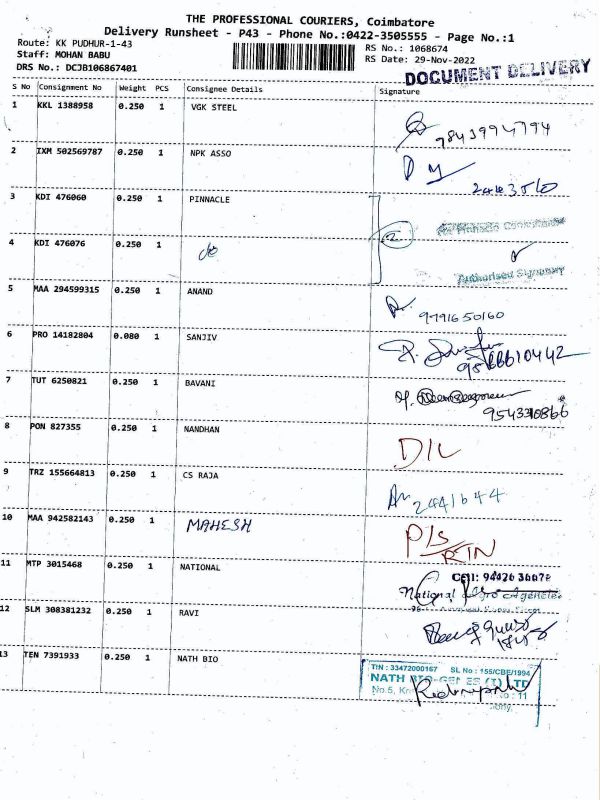 THE PROFESSIONAL COURIERS, Coimbatore
Delivery Runsheet - P43 - Phone No.:0422-3505555 - Page No.:1
Route: KK PUDHUR-1-43
Staff: MOHAN BABU
DRS No.: DCJB106867401
RS No.: 1068674
RS Date: 29-Nov-2022
DOCUMENT DELIVERY
S No Consignment No Weight PCS Consignee Details Signature
1 KKL 1388958 0.250 1 VGK STEEL
9843994794
2 IXM 502569787 0.250 1 NPK ASSO
3 KDI 476060 0.250 1 PINNACLE
4 KDI 476076 0.250 1 do
Authorised Signatory
5 MAA 294599315 0.250 1 ANAND
9791650160
6 PRO 14182804 0.080 1 SANJIV
7 TUT 6250821 0.250 1 BAVANI
8 PON 827355 0.250 1 NANDHAN
D/L
9 TRZ 155664813 0.250 1 CS RAJA
2441644
10 MAA 942582143 0.250 1 MAHESH
P/S
RTN
11 MTP 3015468 0.250 1 NATIONAL
National Agro Agencies
12 SLM 308381232 0.250 1 RAVI
13 TEN 7391933 0.250 1 NATH BIO
TIN : 33472000167 SL No : 155/CBE/1994
NATH BIO-GENES (I) LTD
No.5,